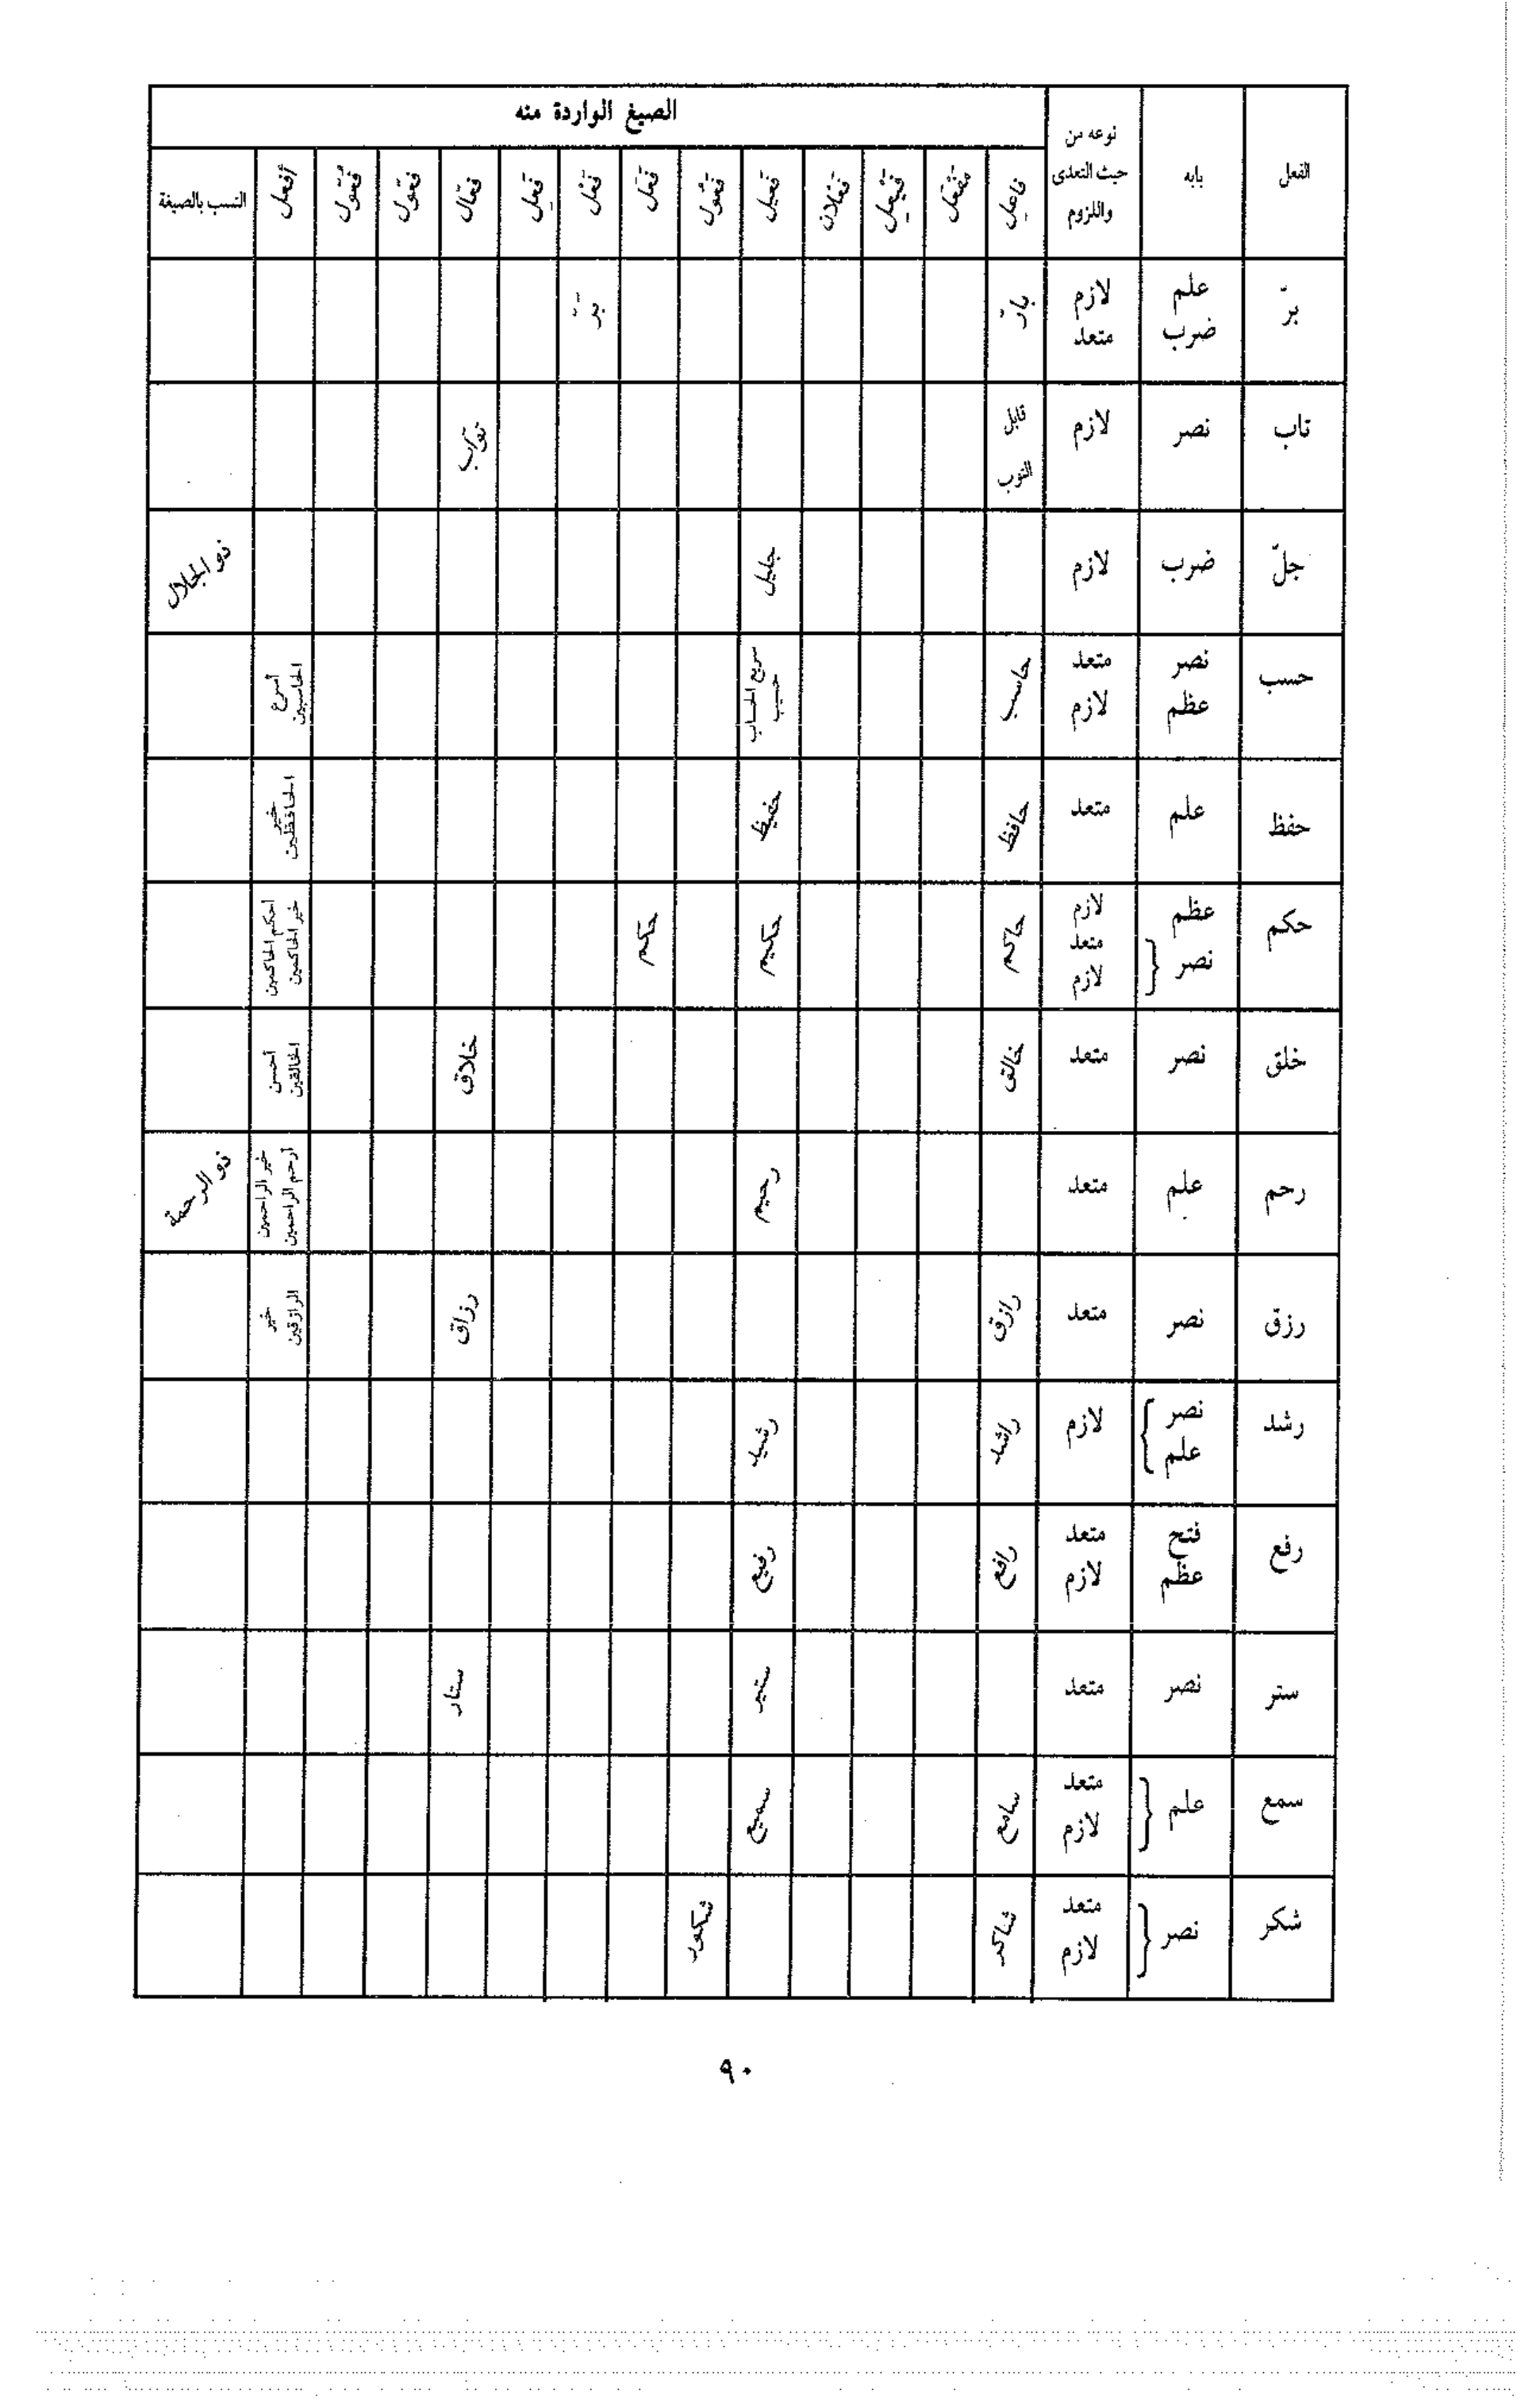 الصيغ الواردة منه
الفعل
بابه
نوعه من
حيث التعدى
واللزوم
فاعل
مفعل
فيعل
فعلان
فعيل
فعول
فعل
فعل
فعل
فعّال
فعّول
فُعّول
أفعل
النسب بالصيغة
برّ
علم
ضرب
لازم
متعد
بارّ
بَرّ
تاب
نصر
لازم
قابل
التوب
توّاب
جلّ
ضرب
لازم
جليل
ذو الجلال
حسب
نصر
عظم
متعد
لازم
حاسب
سريع الحساب
حسيب
أسرع
الحاسبين
حفظ
علم
متعد
حافظ
حفيظ
خير
الحافظين
حكم
عظم
نصر
لازم
متعد
لازم
حاكم
حكيم
حكم
أحكم الحاكمين
خير الحاكمين
خلق
نصر
متعد
خالق
خلاق
أحسن
الخالقين
رحم
علم
متعد
رحيم
خير الراحمين
أرحم الراحمين
ذو الرحمة
رزق
نصر
متعد
رازق
رزاق
خير
الرازقين
رشد
نصر
علم
لازم
راشد
رشيد
رفع
فتح
عظم
متعد
لازم
رافع
رفيع
ستر
نصر
متعد
ستير
ستار
سمع
علم
متعد
لازم
سامع
سميع
شكر
نصر
متعد
لازم
شاكر
شكور
٩٠